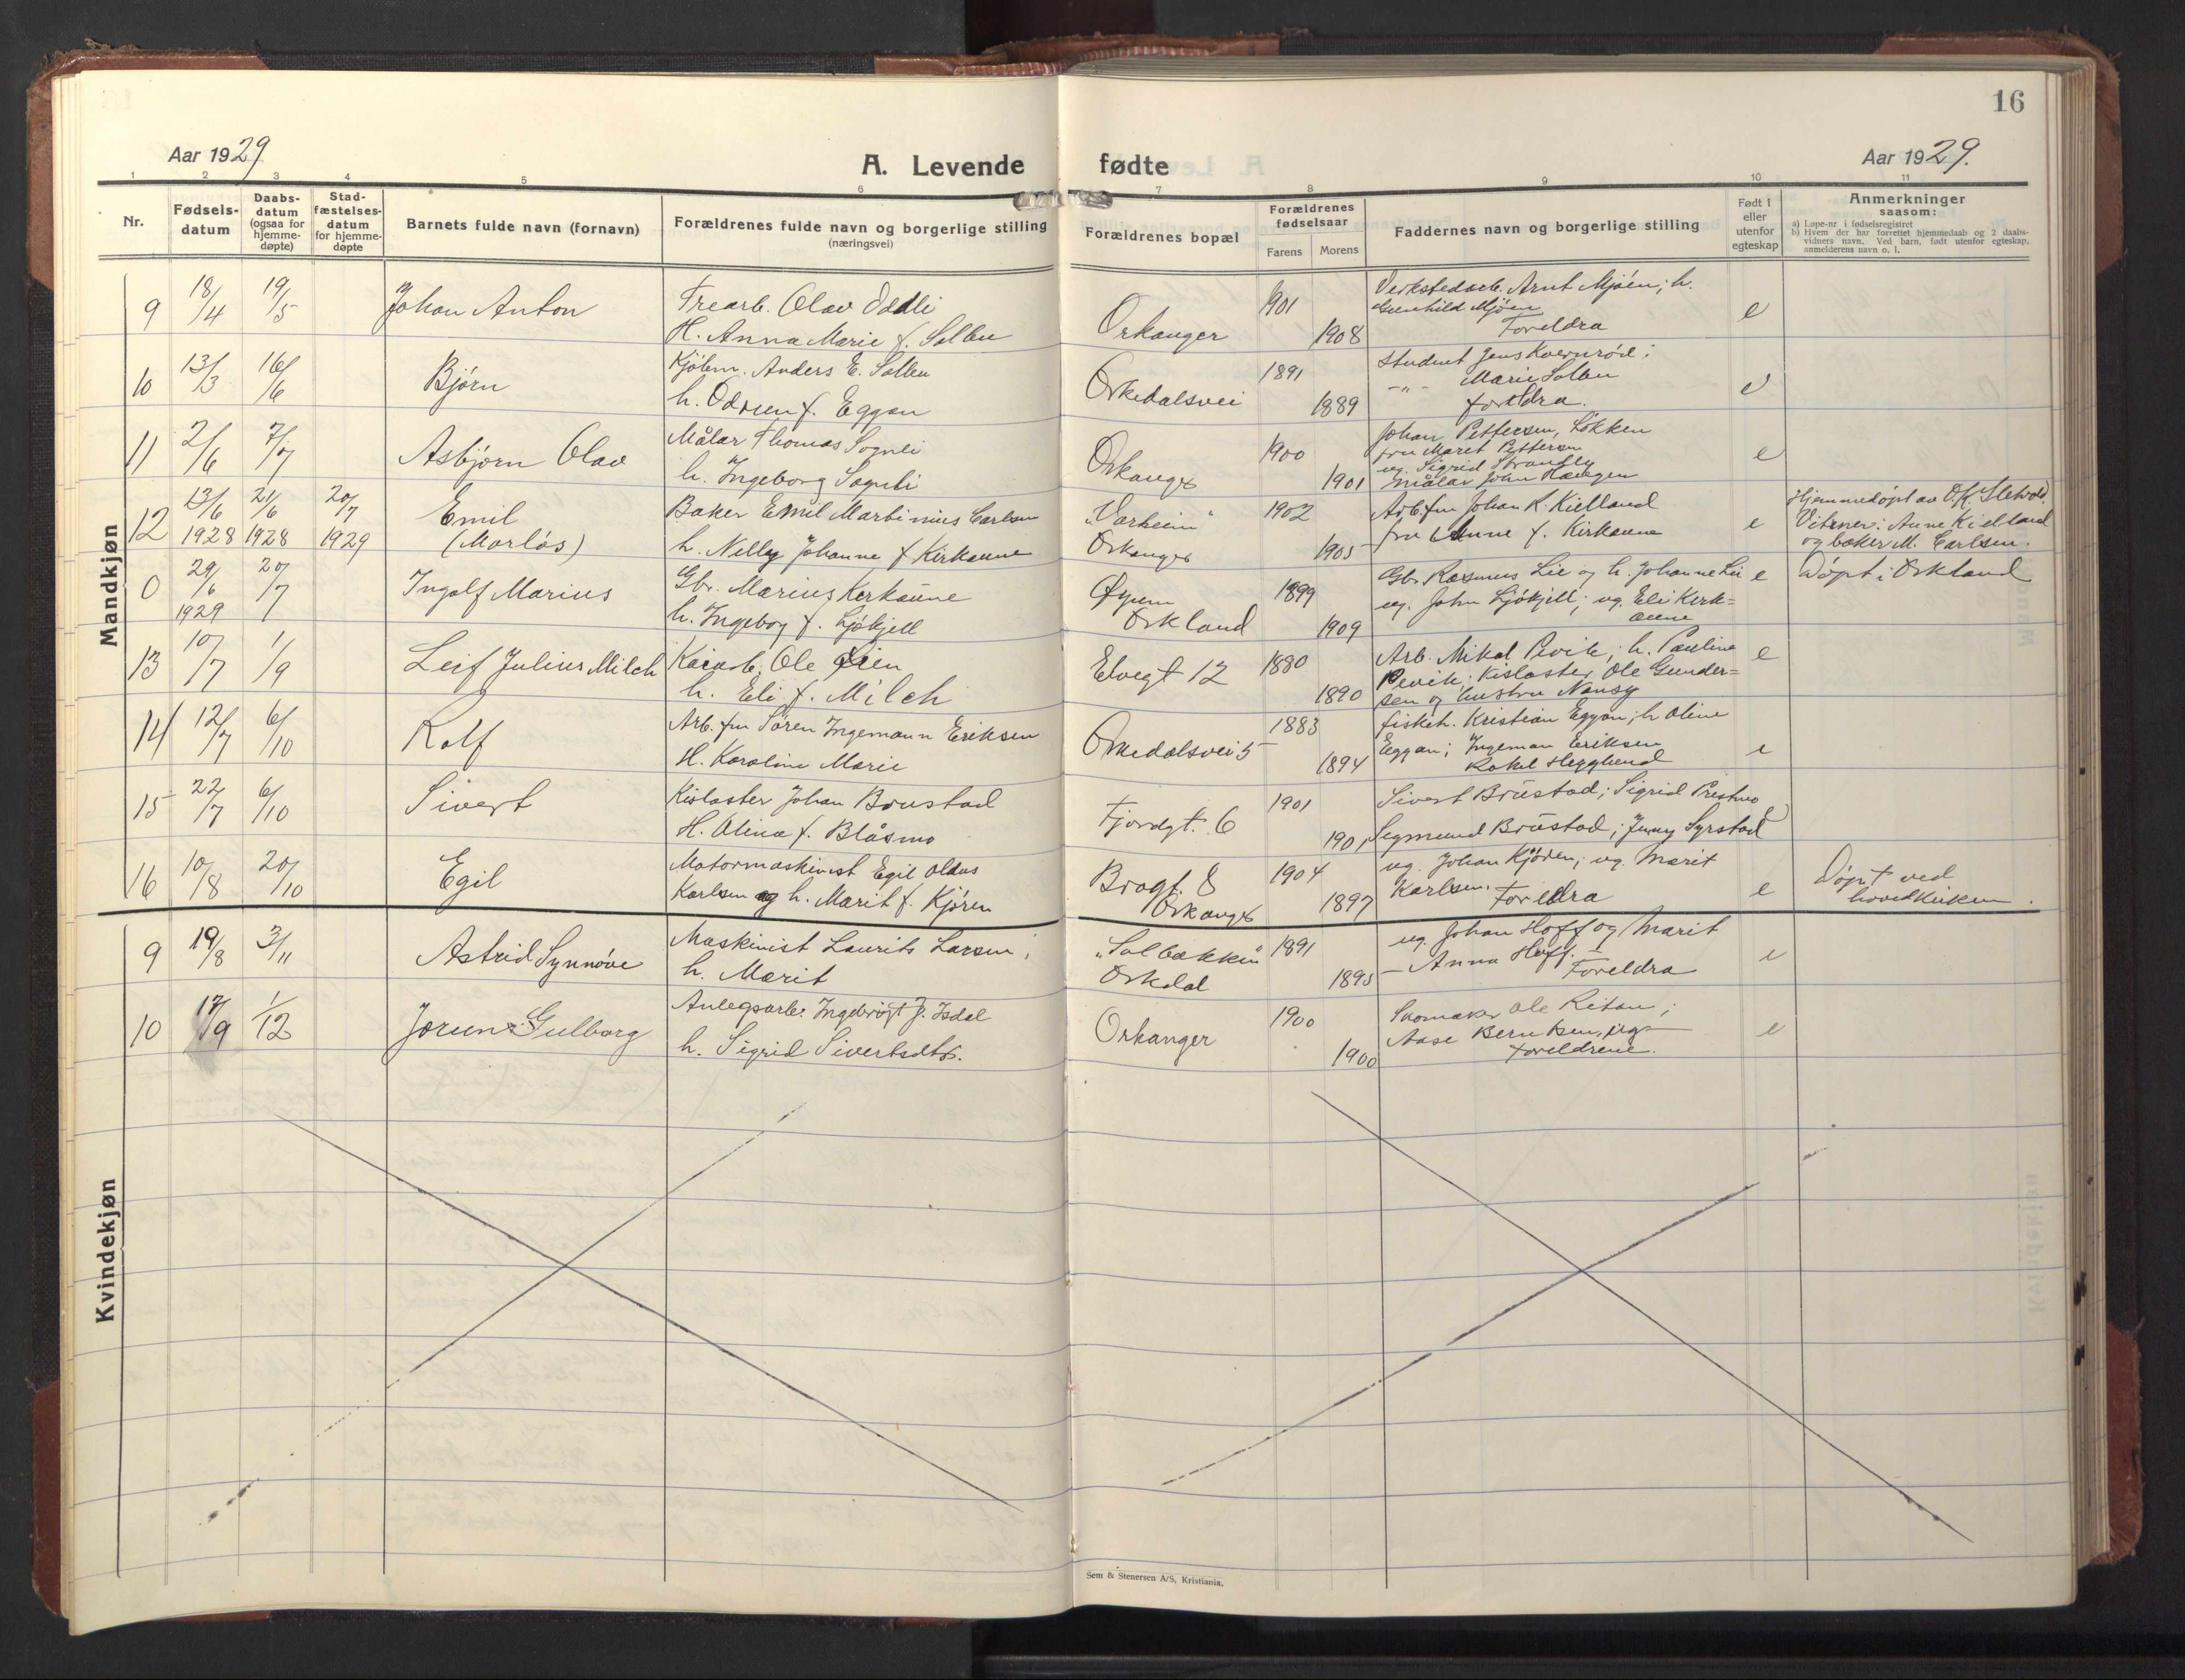 16
Aar 1929
A. Levende fødte
Aar 1929.
1 2 3 4 5 6 7 8 9 10 11
Nr.
Fødsels-
datum
Daabs-
datum
(ogsaa for
hjemme-
døpte)
Stad-
fæstelses-
datum
for hjemme-
døpte
Barnets fulde navn (fornavn)
Forældrenes fulde navn og borgerlige stilling
(næringsvei)
Forældrenes bopæl
Forældrenes
fødselsaar
Farens Morens
Faddernes navn og borgerlige stilling
Født i
eller
utenfor
egteskap
Anmerkninger
saasom:
a) Løpe-nr i fødselsregistret
b) Hvem der har forrettet hjemmedaab og 2 daabs-
vidners navn. Ved barn, født utenfor egteskap,
anmelderens navn o. l.
Mandkjøn
9 18/4 19/5 Johan Anton
Trearb. Olav
H. Anna Marie f. Solbu
Orkanger 1901 1908
Verkstedarb. Arnt Mjøen; h.
Gunhild Mjøen
Foreldra
e
10 13/3 16/6 Bjørn
Kjøbm. Anders E. Solbu
h. Odrun f. Eggan
Orkedalsvei 1891 1889
Student Jens Kvernrød;
-"- Marie Solbu
foreldra.
e
11 2/6 7/7 Asbjørn Olav
Målar Thomas Sognli
h. Ingeborg Sognli
Orkanger 1900 1901
Johan Pettersen, Løkken
fru Maret Pettersen
ug. Sigrid Strandly
målar John Haugen
e
12 13/6 1928 21/6 1928 20/7 1929 Emil
(Morløs)
Baker Emil Marbinius Carlsen
h. Nelly Johanne f. Kirkaune
"Varheim"
Orkanger 1902 1905
Arb.fm Johan R. Kielland
fru Anne f. Kirkaune
e
Hjemmedøpt av O. K.
Vitner: Anne Kielland
og baker M. Carlsen.
0 29/6 1929 20/7 Ingolf Marius
Gbr. Marius Kirkaune
h. Ingebor f. Ljøkjell
Øyum
Orkland 1899 1909
Gbr. Rasmus Lie og h. Johanne Lie
ug. John Ljøkjell; ug. Eli Kirk=
aune
e
Døpt i Orkland
13 10/7 1/9 Leif Julius Milch
Kaiarb. Ole Lien
h. Eli f. Milch
Elvegt 12 1880 1890
Arb. Mikal Pevik; h. Pauline
Pevik; Kislaster Ole Gunder=
sen og hustru Nansy
e
14 12/7 6/10 Rolf
Arb.fm Søren Ingemann Eriksen
H. Karoline Marie
Orkedalsvei 5 1883 1894
fiskeh. Kristian Eggan; h Oline
Eggan; Ingeman Eriksen
Rakel Hegglund
e
15 22/7 6/10 Sivert
Kislaster Johan Brustad
H. Olina f. Blåsmo
Fjordgt. 6 1901 1901
Sivert Brustad; Sigrid Prestmo
Segmund Brustad; Jenny Syrstad
e
16 10/8 20/10 Egil
Motormaskinist Egil Oldus
Karlsen og h. Marit f. Kjøren
Brogt. 8
Orkanger 1904 1897
ug. Johan Kjøren; ug. Marit
Karlsen.
Foreldra
e
Døpt ved
hovedkirken.
Kvindekjøn
9 19/8 3/11 Astrid Synnøve
Maskinist Laurits Larsen;
h. Marit
"Solbakken"
Orkdal 1891 1895
ug. Johan Hoff og Marit
Anna Hoff.
Foreldra
e
10 17/9 1/12 Jorunn Gulborg
Anlegsarb. Ingebrigt J. Isdal
h. Sigrid Sivertsdtr.
Orkanger 1900 1900
Skomaker Ole Ritan;
Aase Berntsen, ug
foreldrene.
e
Sem & Stenersen A/S, Kristiania.